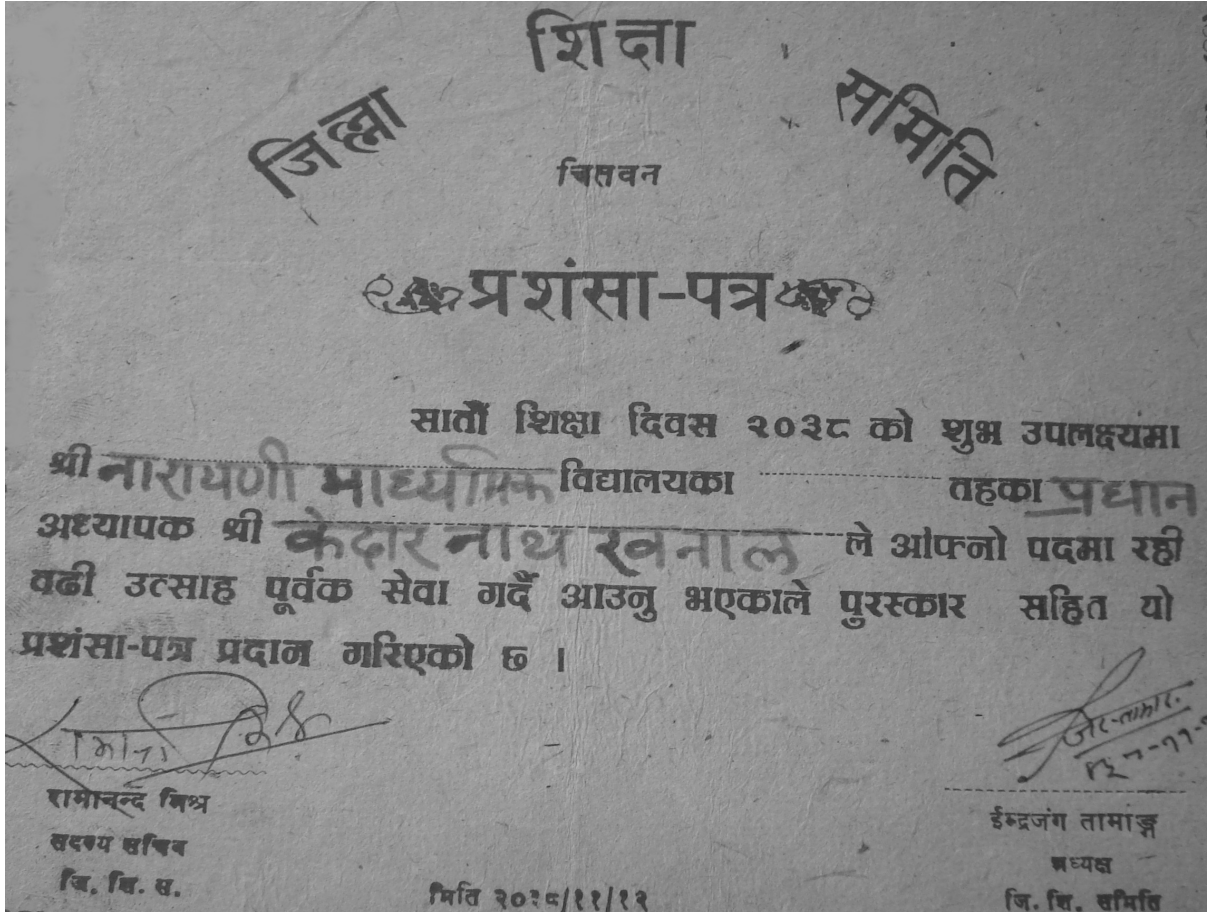 जिल्ला शिक्षा समिति
चितवन
प्रशंसा-पत्र
सातौं शिक्षा दिवस २०३८ को शुभ उपलक्ष्यमा
श्री नारायणी माध्यमिक विद्यालयका तहका प्रधान
अध्यापक श्री केदार नाथ खनाल ले आफ्नो पदमा रही
वढी उत्साह पूर्वक सेवा गर्दै आउनु भएकाले पुरस्कार सहित यो
प्रशंसा-पत्र प्रदान गरिएको छ ।
रामानन्द मिश्र
सदस्य सचिव
जि. शि. स.
मिति २०३८/११/१२
ईन्द्रजंग तामाङ्ग
अध्यक्ष
जि. शि. समिति